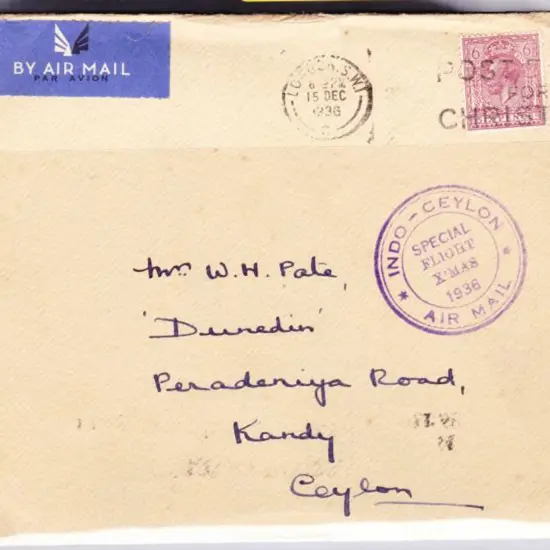 BY AIR MAIL
PAR AVION
LONDON. S.W.1
15 DEC
1936
6 6
POST
FOR
CHRIST
INDO-CEYLON
SPECIAL
FLIGHT
X'MAS
1936
* AIR MAIL *
Mrs W. H. Pate,
'Dunedin'
Peradeniya Road,
Kandy
Ceylon